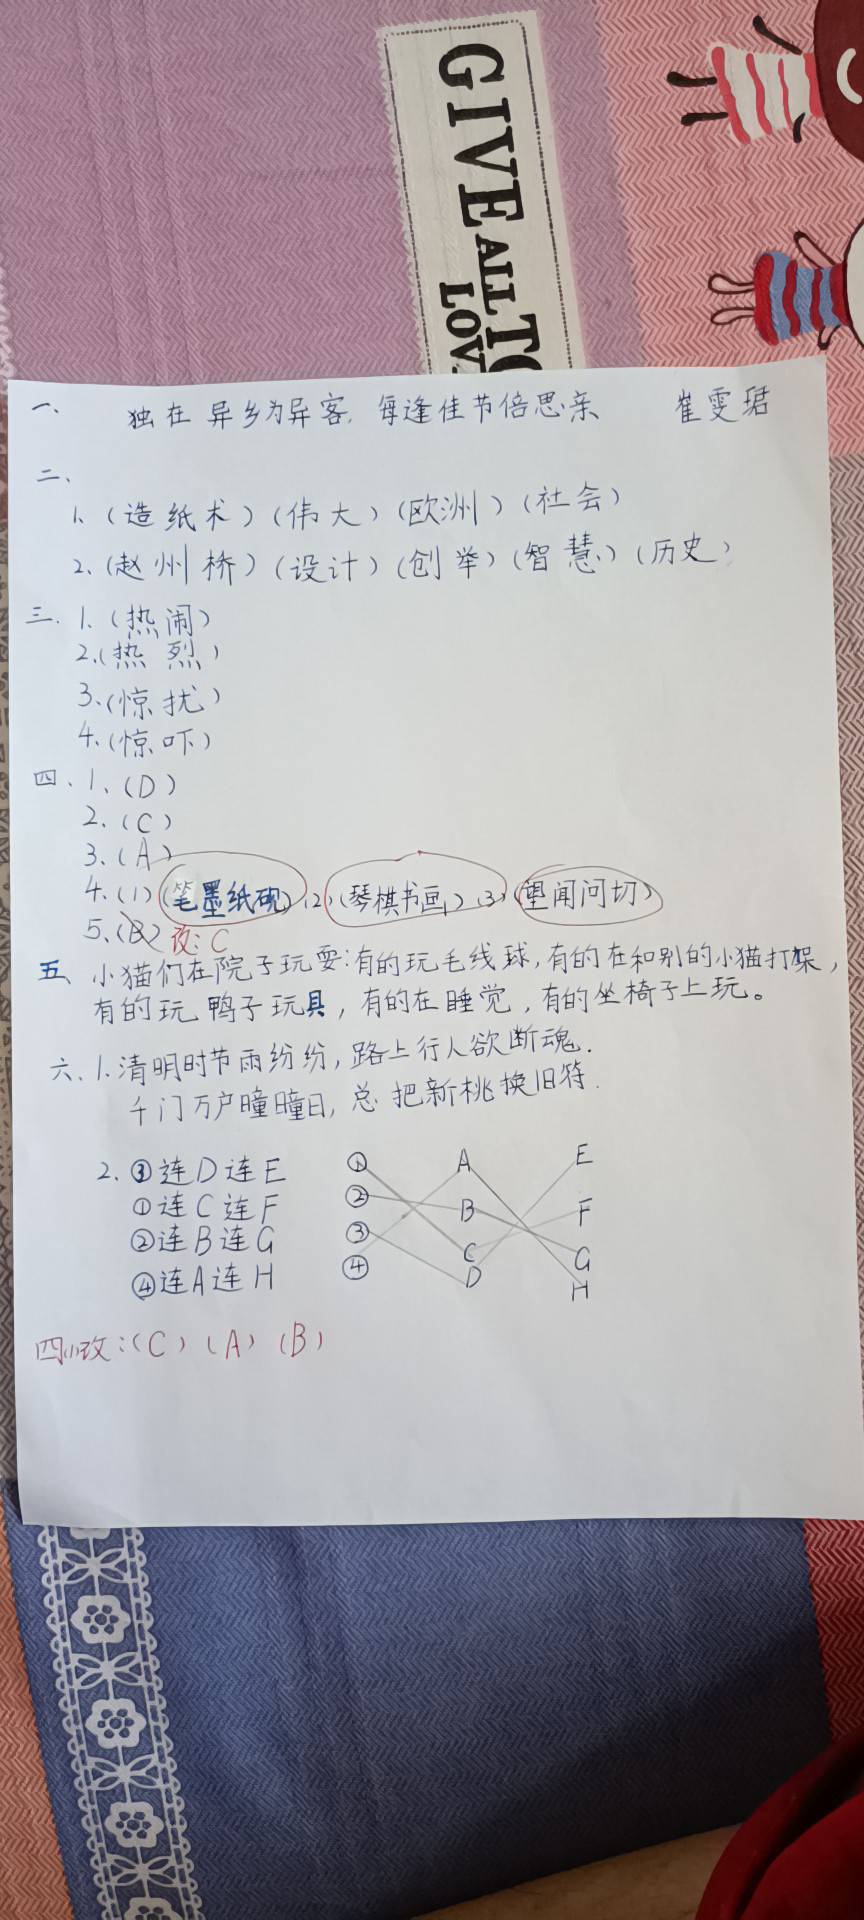 GIVE ALL TO
LOV
一、 独在异乡为异客,每逢佳节倍思亲 崔雯珺
二、
1、(造纸术)(伟大)(欧洲)(社会)
2、(赵州桥)(设计)(创举)(智慧)(历史)
三、1、(热闹)
2、(热烈)
3、(惊扰)
4、(惊吓)
四、1、(D)
2、(C)
3、(A)
4、(1)(笔墨纸砚)(2)(琴棋书画)(3)(望闻问切)
5、(B) 改:C
五、小猫们在院子玩耍:有的玩毛线球,有的在和别的小猫打架,
有的玩鸭子玩具,有的在睡觉,有的坐椅子上玩。
六、1.清明时节雨纷纷,路上行人欲断魂.
千门万户曈曈日,总把新桃换旧符.
2.③连D连E
①连C连F
②连B连G
④连A连H
① A E
② B F
③ C G
④ D H
四(1)改:(C)(A)(B)